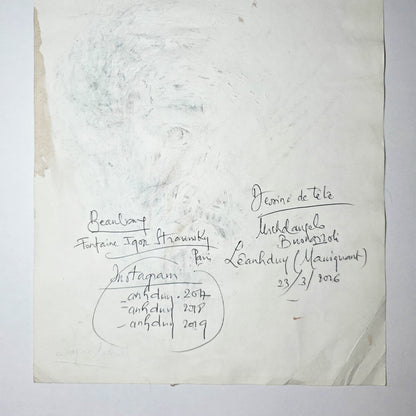 Beaubourg
Fontaine Igor Stravinsky
Paris
Instagram
- anhduy. 2017
= anhduy 2018
- anhduy 2019
Dessine de tête
Michelangelo
Buonarroti
Léanhduy (Mauiquant)
23/3/2026